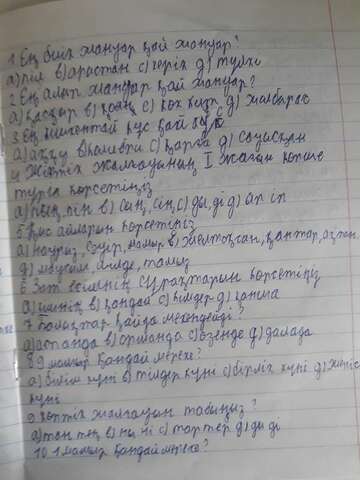 1 Ең биік жануар қай жануар?
а) піл в) арыстан с) керік д) түлкі
2 Ең алып жануар қай жануар?
а) қасқыр в) қоян с) көк кит д) жолбарыс
3 Ең кішкентай құс қай құс
а) аққу в) колибри с) қарға д) сауысқан
4 Жіктік жалғауының I жағын көпше
түрге көрсетіңіз
а) пың, пін в) сың, сің с) ды, ді д) ып іп
5 Қыс айларын көрсетіңіз
а) наурыз, сәуір, мамыр в) желтоқсан, қаңтар, ақпан
д) маусым, шілде, тамыз
6 Зат есімнің сұрақтарын көрсетіңіз
а) кімнің в) қандай с) кімдер д) қанша
7 балықтар қайда мекендейді?
а) аспанда в) орманда с) өзенде д) далада
8 9 мамыр қандай мереке?
а) білім күні в) тілдер күні с) бірлік күні д) жеңіс
күні
9 көптік жалғауын табыңыз?
а) тан тең в) ны ні с) тар тер д) ды ді
10 1 мамыр қандай мереке?